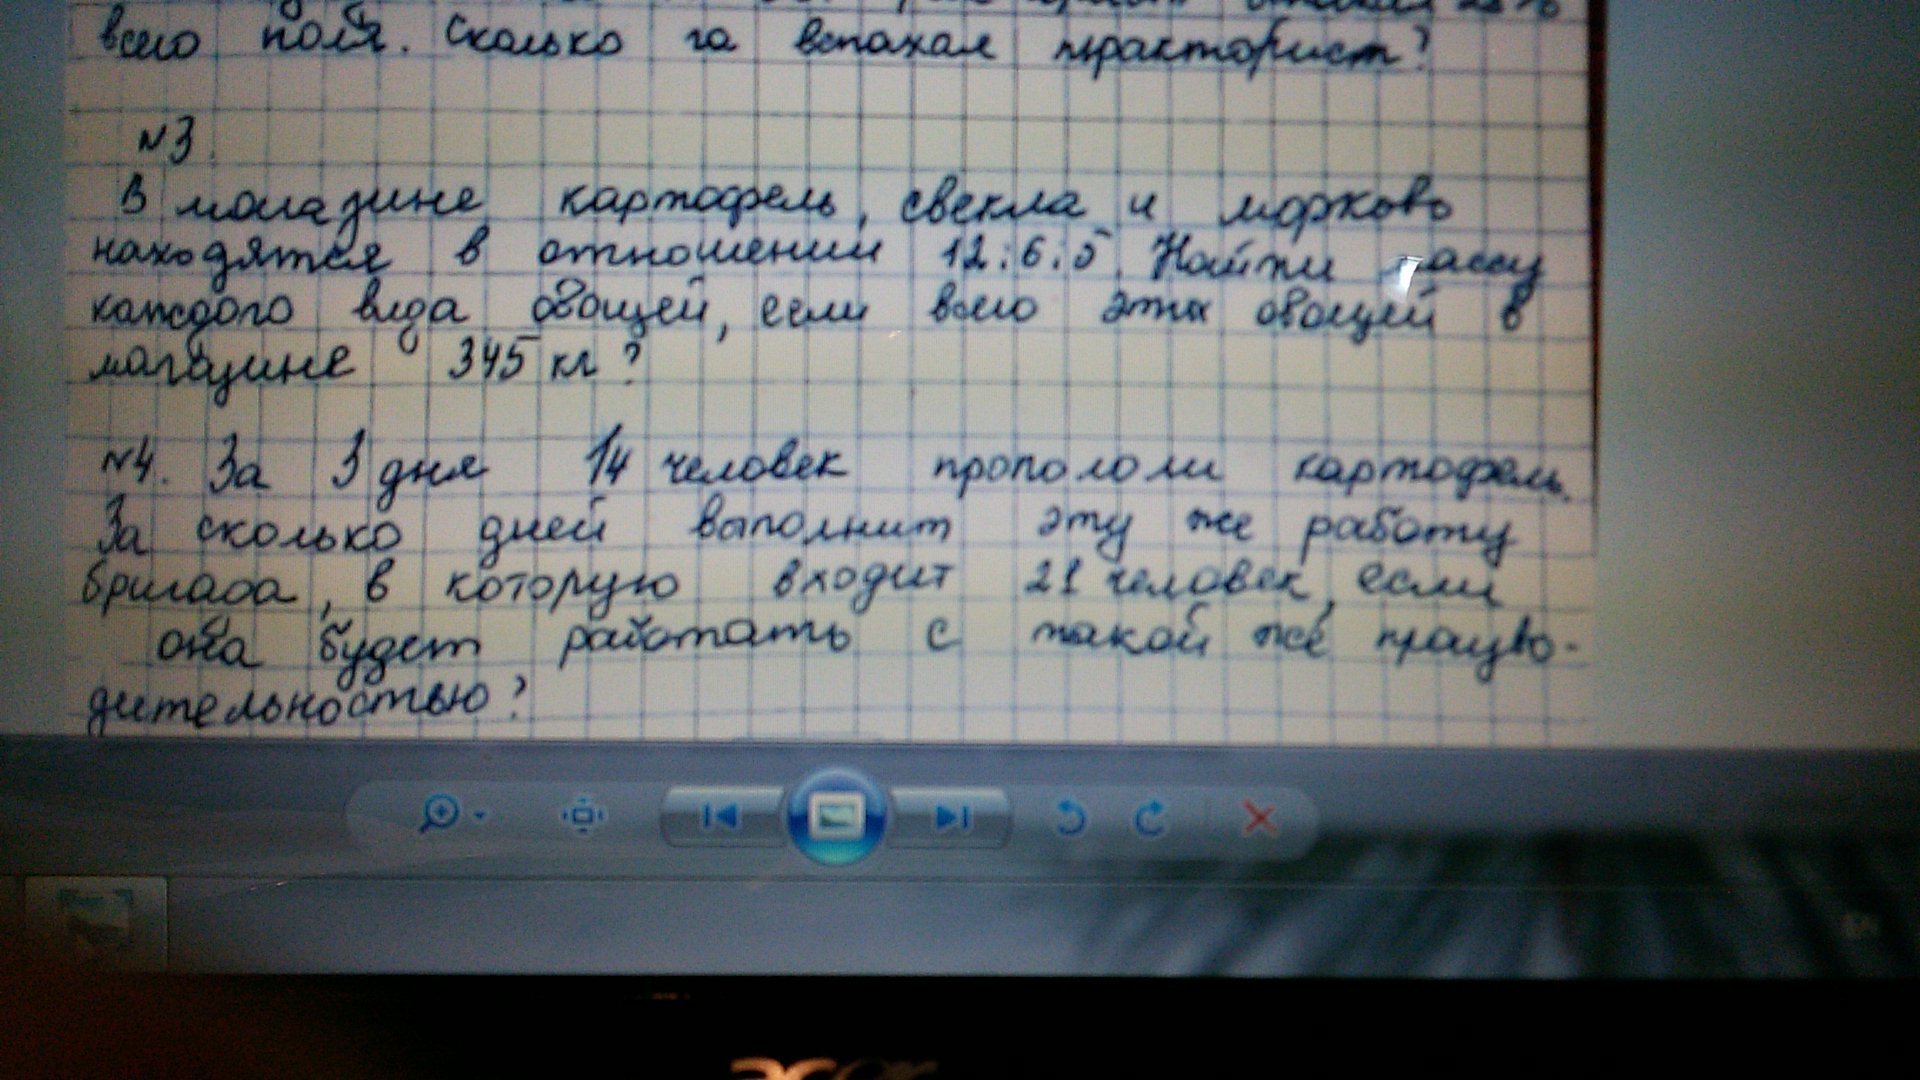 всего поля. Сколько га вспахал тракторист?
№3.
В магазине картофель, свекла и морковь
находятся в отношении 12:6:5. Найти массу
каждого вида овощей, если всего этих овощей в
магазине 345 кг?
№4. За 3 дня 14 человек пропололи картофель.
За сколько дней выполнит эту же работу
бригада, в которую входит 21 человек, если
она будет работать с такой же произво-
дительностью?
acer